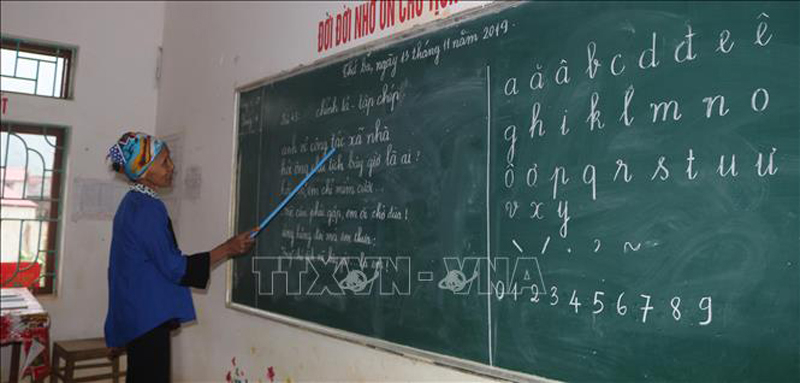 ĐỜI ĐỜI NHỚ ƠN CHỦ TỊCH
Thứ ba, ngày 13 tháng 11 năm 2019.
chính tả - tập chép
anh về công tác xã nhà
hỏi ông chủ tịch bây giờ là ai !
em chỉ mỉm cười...
cần phải gặp, em ơi chớ đùa !
a ă â b c d đ e ê
g h i k l m n o
ô ơ p q r s t u ư
v x y
\ / . ? ~
0 1 2 3 4 5 6 7 8 9
TTXVN - VNA